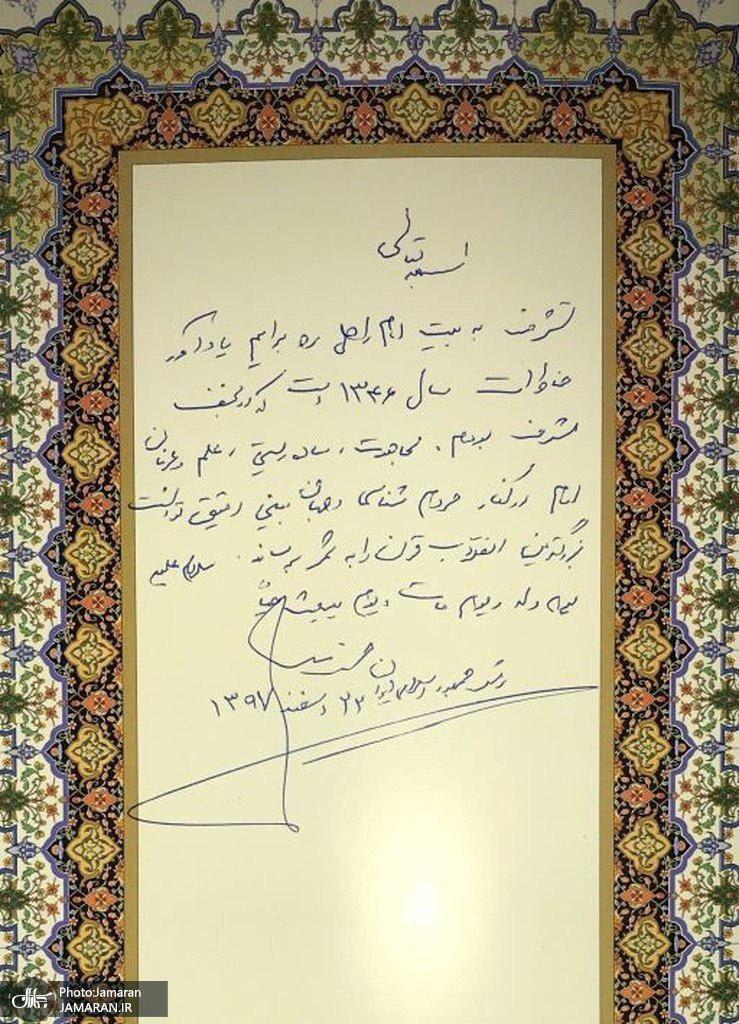 بسمه تعالی
تشرف به بیت امام راحل ره برایم یادآور
خاطرات سال ۱۳۴۶ است که در نجف
مشرف بودم. مجاهدت، ساده زیستی، علم و عرفان
امام در کنار مردم شناسی و جهان بینی دقیق توانست
بزرگترین انقلاب قرن را به ثمر برساند. سلام علیه
یوم ولد و یوم مات و یوم یبعث حیا
حسن روحانی
رئیس جمهوری اسلامی ایران ۲۲ اسفند ۱۳۹۷
جماران
Photo:Jamaran
JAMARAN.IR